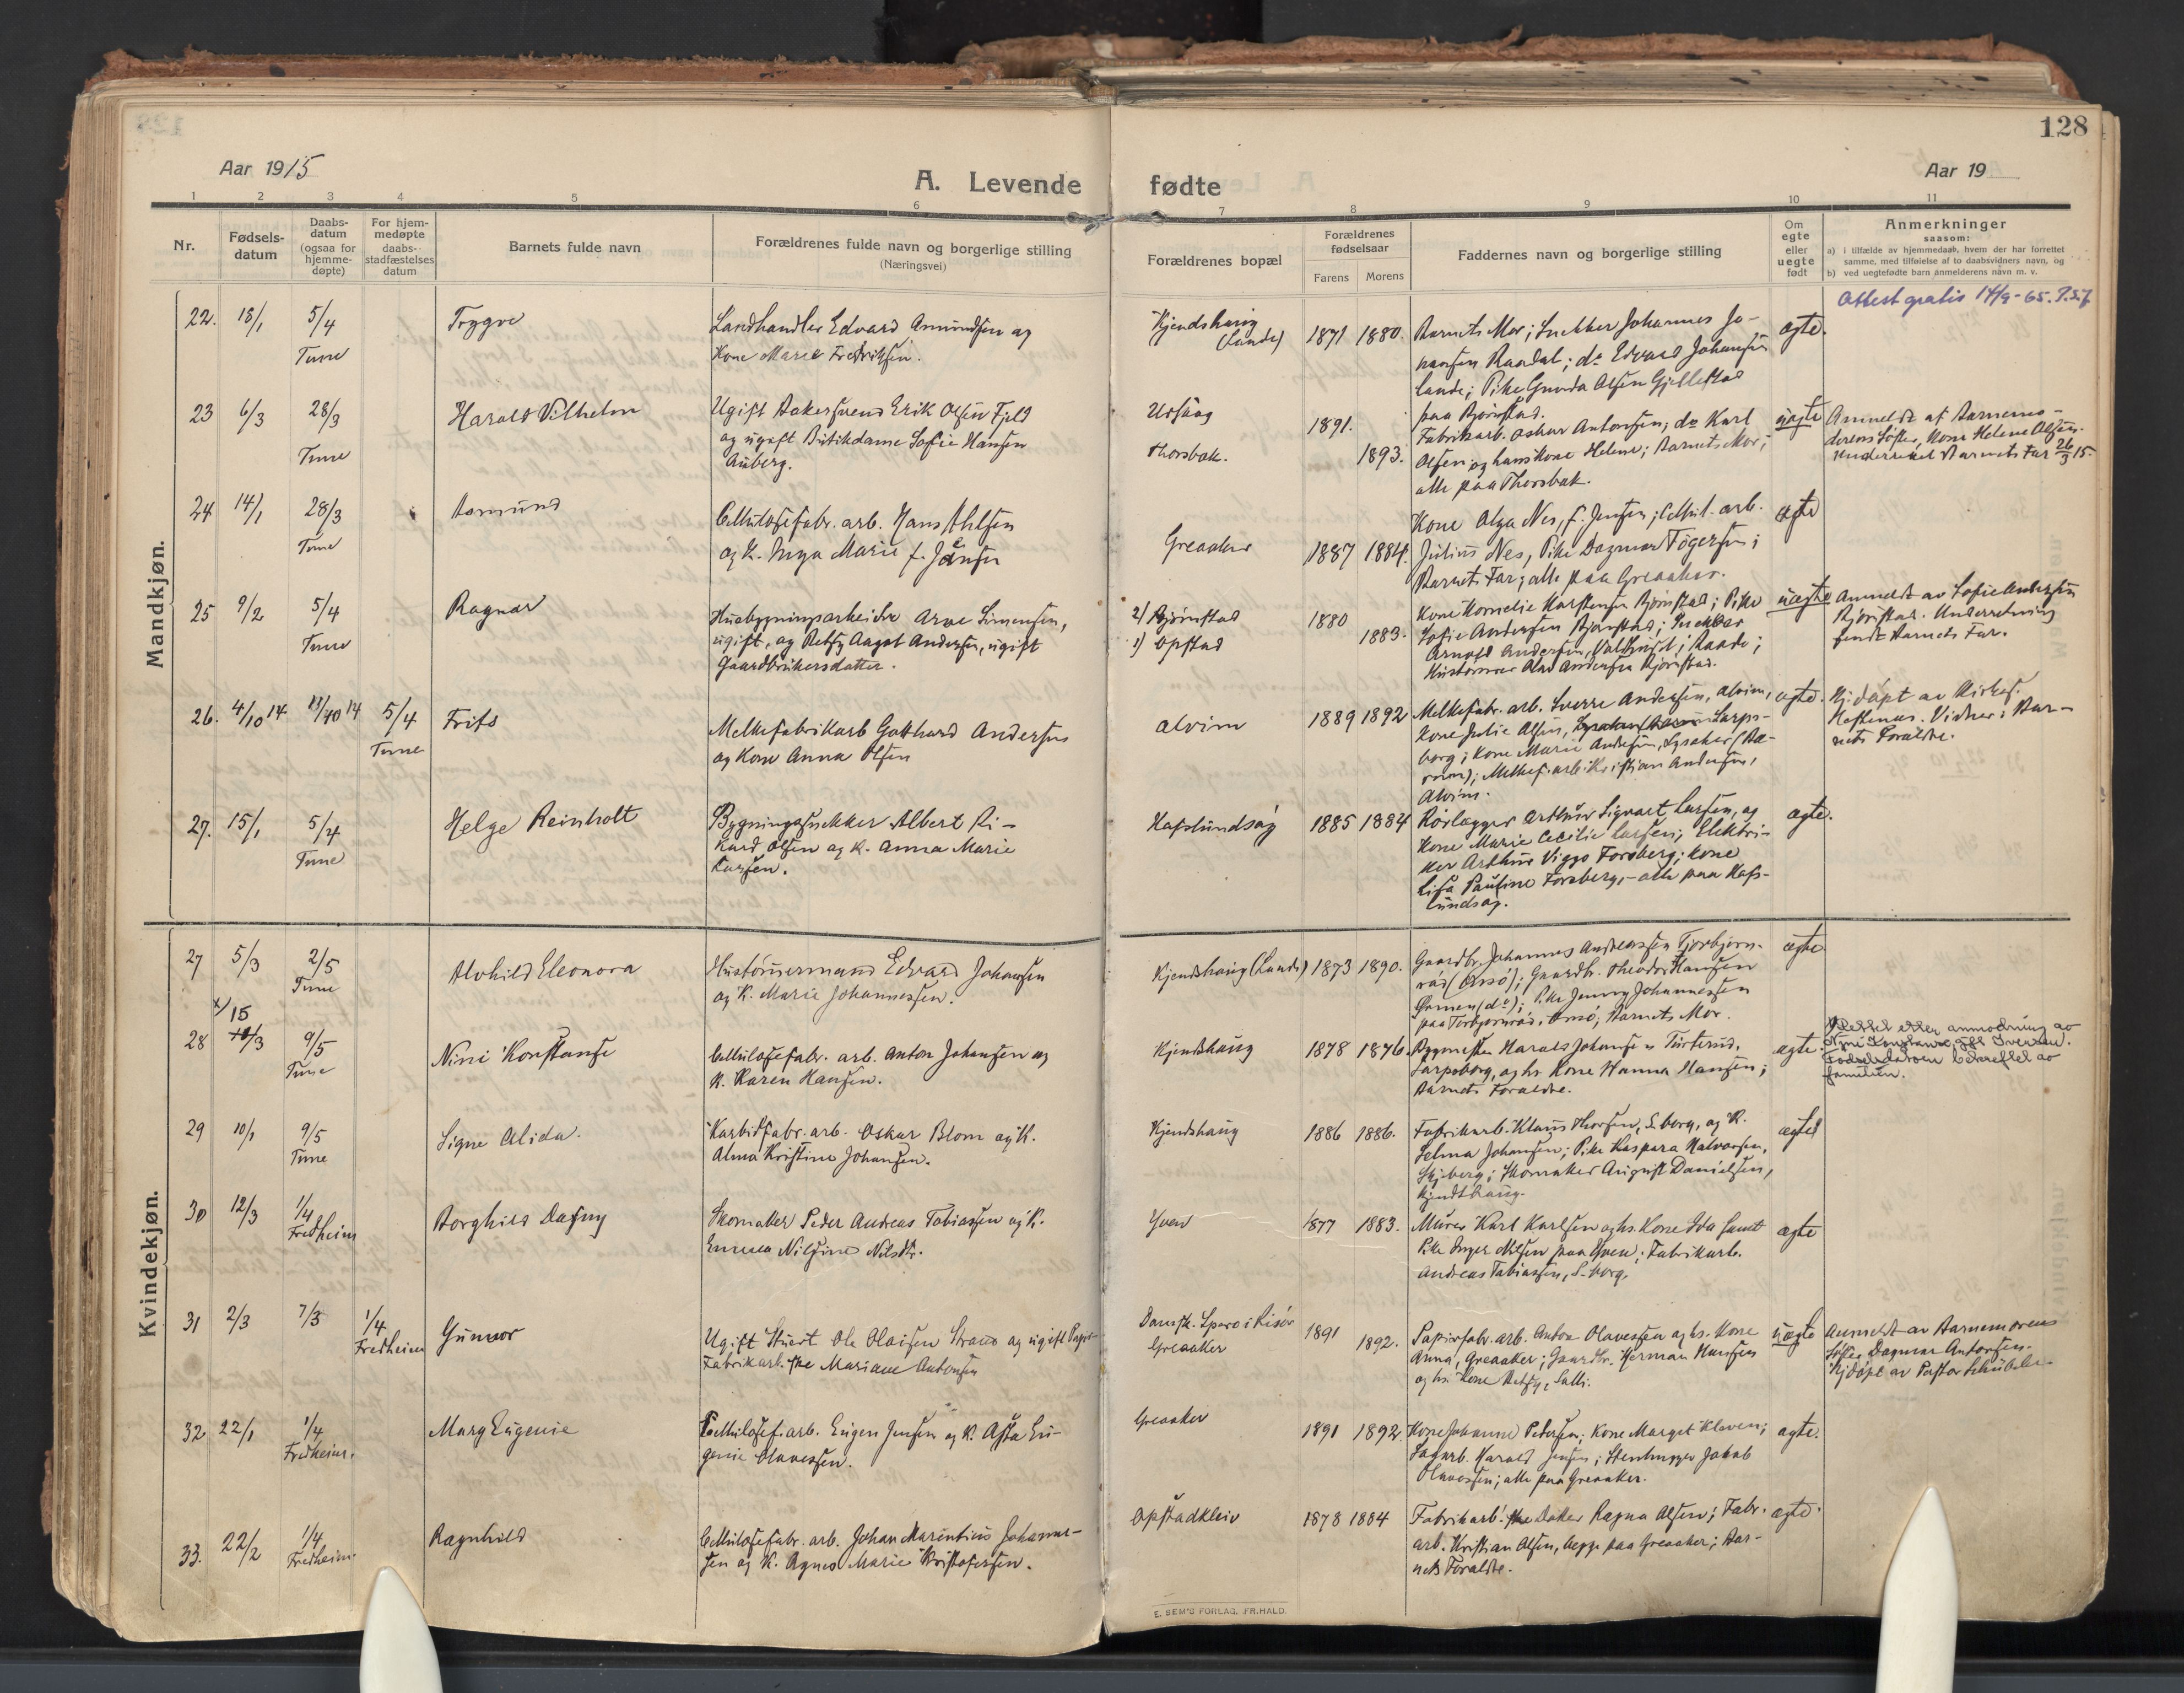 128
Aar 1915
A. Levende fødte
Aar 19
1 2 3 4 5 6 7 8 9 10 11
Nr.
Fødsels-
datum
Daabs-
datum
(ogsaa for
hjemme-
døpte)
For hjem-
medøpte
daabs-
stadfæstelses
datum
Barnets fulde navn
Forældrenes fulde navn og borgerlige stilling
(Næringsvei)
Forældrenes bopæl
Forældrenes
fødselsaar
Farens Morens
Faddernes navn og borgerlige stilling
Om
egte
eller
uegte
født
Anmerkninger
saasom:
a) i tilfælde av hjemmedaab, hvem der har forrettet
samme, med tilføielse af to daabsvidners navn, og
b) ved uegtefødte barn anmelderens navn m. v.
Mandkjøn.
22. 18/1 5/4
Tune
Trygve
Landhandler Edvard Amundsen og
Kone Marie Fredriksen.
Kjendshaug
(Lunde)
1871 1880.
Barnets Mor; Snekker Johannes Jo-
hansen Raadal; do Edvard Johansen
Lande; Pike Gunda Olsen Gjellestad
paa Bjørnstad.
egte.
Attest gratis 14/9-65.
23 6/3 28/3
Tune
Harald Vilhelm
Ugift Aakersvend Erik Olsen Fjeld
og ugift Butikdame Sofie Hansen
Auberg.
Udsäng
Thorsbak.
1891.
1893.
Fabrikarb. Oskar Antonsen; do Karl
Olsen og hans Kone Helene; Barnets Mor;
alle paa Thorsbak.
uegte
Anmeldt af Barnemo-
derens Søster, Kone Helene Olsen.
Underrettet Barnets Far 26/3 15.
24 14/1 28/3
Tune
Asmund
Cellulosefabr. arb. Hans Ahlsen
og K. Inga Marie f. Jensen
Greaaker
1887 1884.
Kone Olga Nes, f. Jensen; Cellul. arb.
Julius Nes, Pike Dagmar Tögersen;
Barnets Far; alle paa Greaaker.
egte
25 9/2 5/4
Tune
Ragnar
Husbygningsarbeider Arve Simensen,
ugift, og Betsy Aagot Andersen, ugift
Gaardbrukersdatter.
2) Bjørnstad
1) Opstad
1880
1883.
Kone Kornelie Karstensen Bjørnstad; Pike
Sofie Andersen Bjørnstad; Snekker
Arnold Andersen, Raade;
Andersen Bjørnstad.
uegte
Anmeldt av Sofie Andersen
Bjørnstad. Underretning
sendt Barnets Far.
26. 4/10 14 5/4
Tune
Frits
Melkefabrikarb Gotthard Andersen
og Kone Anna Olsen
Alvim
1889 1892
Melkefabr. arb. Sverre Andersen, Alvim,
Kone Julie Olsen, Sarps-
borg; Kone Marie Andersen, Lysaker (Bæ-
rum); Melkef. arb. Kristian Andersen,
Alvim.
egte.
Hj.döpt av Kirkes.
Vidner: Bar-
nets Foraldre.
27. 15/1 5/4
Tune
Helge Reinholt
Bygningssnekker Albert Ri-
kard Olsen og K. Anna Marie
Larsen.
Hafslundsøg
1885 1884
Rørlægger Arthur Sigvart Larsen, og
Kone Marie Cecilie Larsen; Elektri-
ker Arthur Viggo Forsberg; Kone
Lisa Pauline Forsberg, - alle paa Hafs-
lundsøg.
egte.
Kvindekjøn.
27 5/3 2/5
Tune
Alvhild Eleonora
Hustømmermand Edvard Johansen
og K. Marie Johannessen.
Kjendshaug (Lunde)
1873 1890.
Gaardbr. Johannes Andreassen Torbjørn-
röd (Onsö); Gaardbr. Theodor Hansen
(do); Pike Jenny Johannessen
paa Torbjørnröd, Onsö; Barnets Mor.
egte
x/15
28 10/3 9/5
Tune
Nini Konstanse
Cellulosefabr. arb. Anton Johansen og
K. Karen Hansen.
Kjendshaug
1878 1876.
Bygmester Harald Johansen Turterud,
Sarpsborg, og hs. Kone Hanna Hansen;
Barnets Foraldre.
egte.
Rettet etter anmodning av
Nini Konstanse gft Iversen.
Fødselsdatoen bekreftet av
familien.
29 10/1 9/5
Tune
Signe Alida.
Karbidfabr. arb. Oskar Blom og K.
Alma Kristine Johansen.
Kjendshaug
1886 1886.
Fabrikarb. Klaus Thorsen, S.borg, og K.
Selma Johansen; Pike Kaspara Halvorsen,
Skjeberg; Skomaker August Danielsen,
Kjendshaug.
egte
30 12/3 1/4
Fredheim
Borghild Dagny
Skomaker Peder Andreas Tobiassen og K.
Emma Nilsine Nilsdtr.
Yven
1877 1883.
Murer Karl Karlsen og hs. Kone Ida samt
Pike Inger Nilsen paa Yven; Fabrikarb.
Andreas Tobiassen, S.borg.
egte
31 2/3 7/3 1/4
Fredheim
Gunvor
Ugift Stuert Ole Olaisen Strand og ugift Papir-
fabrikarb.ske Mariane Antonsen
Dampsk. Spero i Risör
Greaaker
1891
1892.
Papirfabr. arb. Anton Olavessen og hs. Kone
Anna, Greaaker; Gaardbr. Herman Hansen
og hs. Kone Betsy, Solli.
uegte
Anmeldt av Barnemorens
Söster Dagmar Antonsen.
Hjdöpt av Pastor Schübeler
32 22/1 1/4
Fredheim.
Mary Eugenie
Cellulosef. arb. Eugen Jensen og K. Asta Eu-
genie Olavessen.
Greaaker
1891 1892.
Kone Johanne Pedersen; Kone Marget Kleven;
Sagarb. Harald Jensen; Stenhugger Jakob
Olavessen; alle paa Greaaker.
egte.
33. 22/2 1/4
Fredheim.
Ragnhild
Cellulosefabr. arb. Johan Marentius Johannes-
sen og K. Agnes Marie Kristofersen.
Opstadkleiv
1878 1884
Fabrikarb.ske Ragna Olsen; Fabr.
arb. Kristian Olsen, begge paa Greaaker; Bar-
nets Foraldre.
egte.
E. SEM'S FORLAG. FR.HALD.